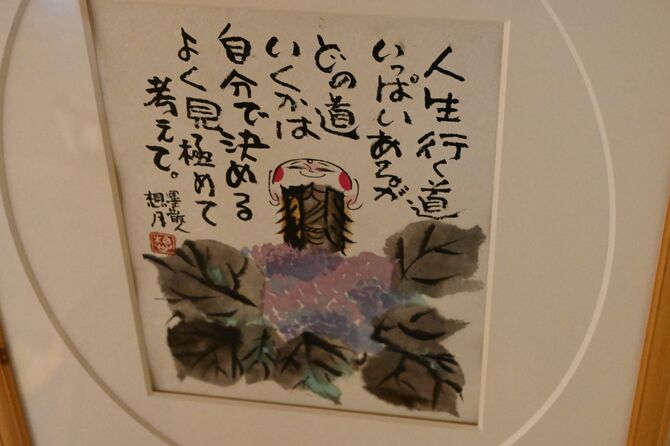 人生行く道
いっぱいあるが
どの道
いくかは
自分で決める
よく見極めて
考えて。
想月